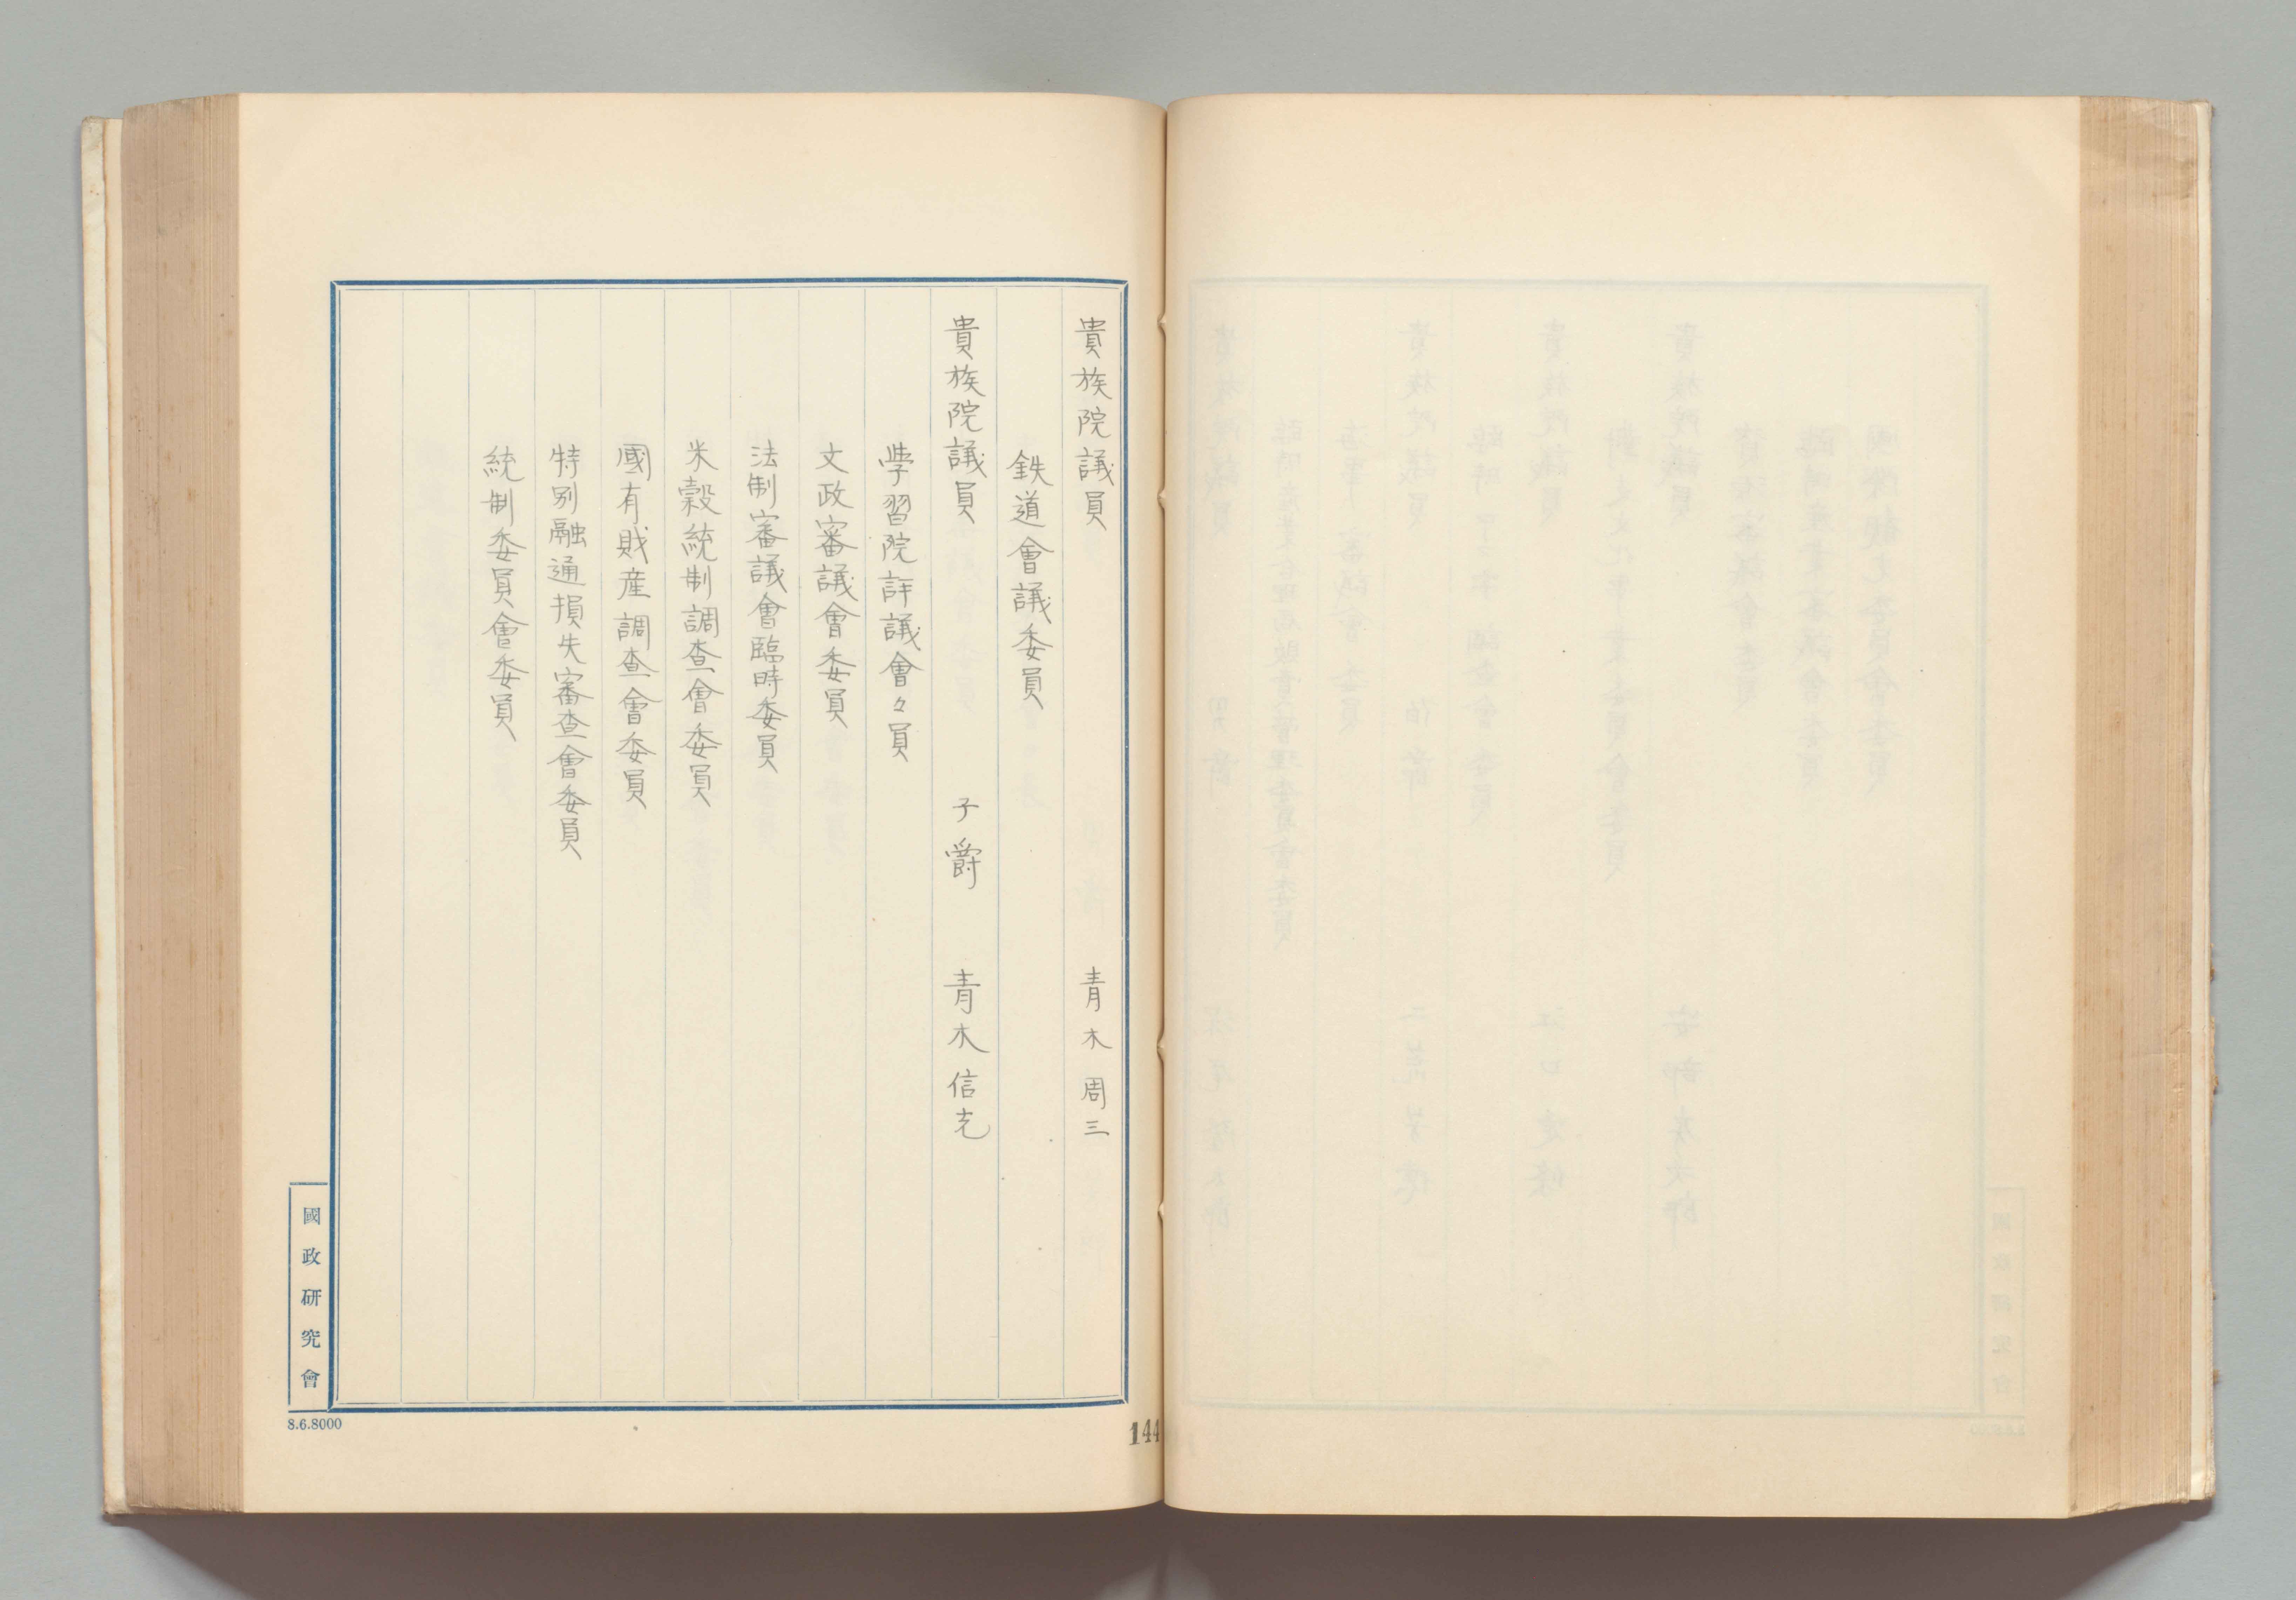 貴族院議員　青木周三
鉄道會議委員
貴族院議員　子爵　青木信光
学習院評議會々員
文政審議會委員
法制審議會臨時委員
米穀統制調査會委員
國有財産調査會委員
特別融通損失審査會委員
統制委員會委員
國政研究會
8.6.8000
144